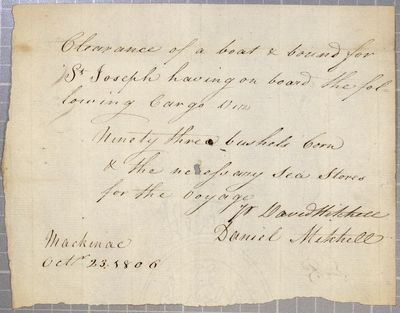 Clearance of a boat & bound for
St Joseph having on board the fol-
lowing Cargo Viz
Ninety three bushels Corn
& the necessary Sea Stores
for the voyage
pr David Mitchell
Daniel Mitchell
Mackinac
Octr 23. 1806